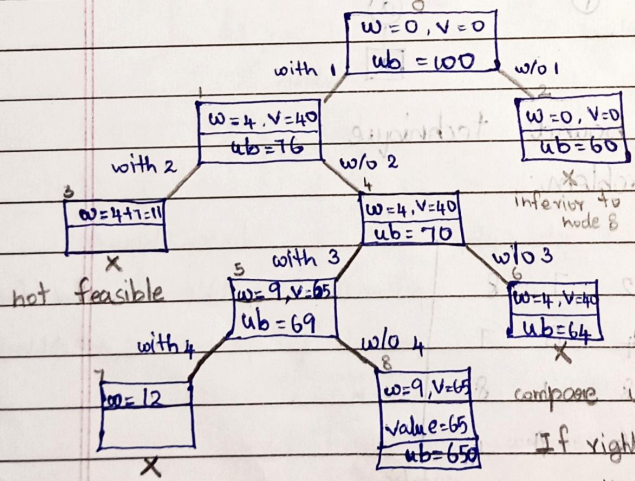 0
w=0, v=0
ub=100
with 1
w/o 1
1
w=4, v=40
ub=76
2
w=0, v=0
ub=60
x
inferior to
node 8
with 2
w/o 2
3
w=4+7=11
x
not feasible
4
w=4, v=40
ub=70
with 3
w/o 3
5
w=9, v=65
ub=69
6
w=4, v=40
ub=64
x
with 4
w/o 4
7
w=12
x
8
w=9, v=65
value=65
ub=650
If righ